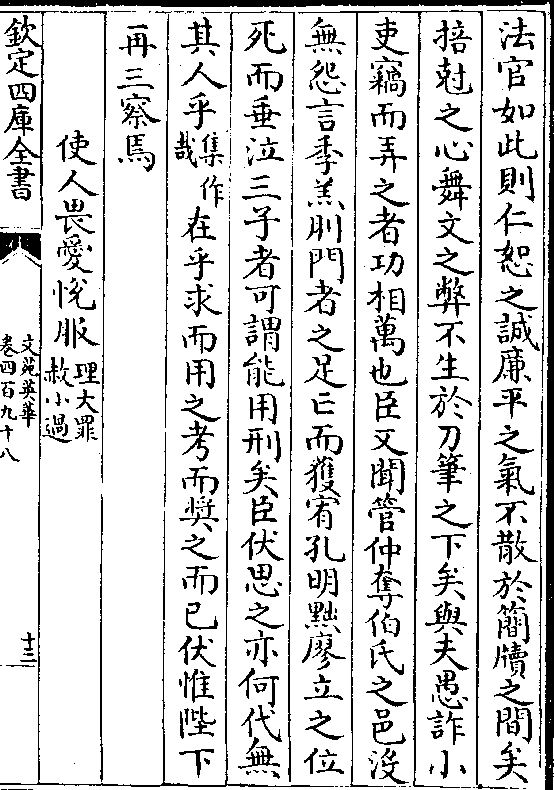 法官如此則仁恕之誠廉平之氣不散於簡牘之間矣
掊尅之心舞文之弊不生於刀筆之下矣與夫愚詐小
吏竊而弄之者功相萬也臣又聞管仲奪伯氏之邑沒
無怨言季羔刖門者之足亡而獲宥孔明黜廖立之位
死而垂泣三子者可謂能用刑矣臣伏思之亦何代無
其人乎集作哉在乎求而用之考而奨之而已伏惟陛下
再三察焉
使人畏愛悅服理大罪赦小過
欽定四庫全書
文苑英華
卷四百九十八
十三